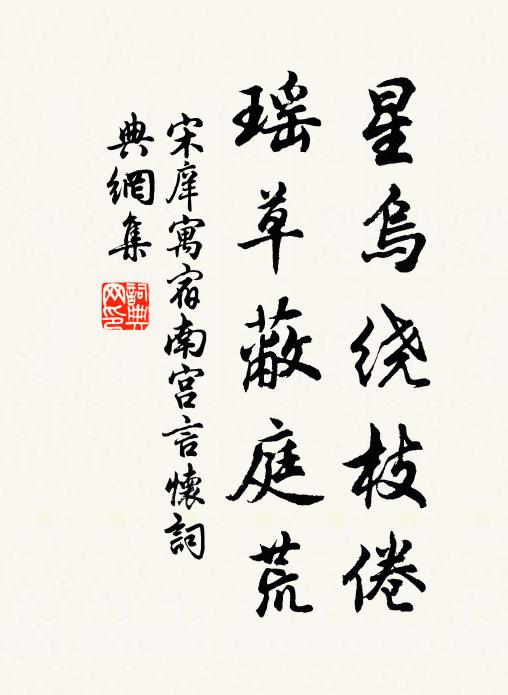 星乌绕枝倦
瑶草蔽庭荒
宋庠寓宿南宫言怀词
典網集
詞典
网印